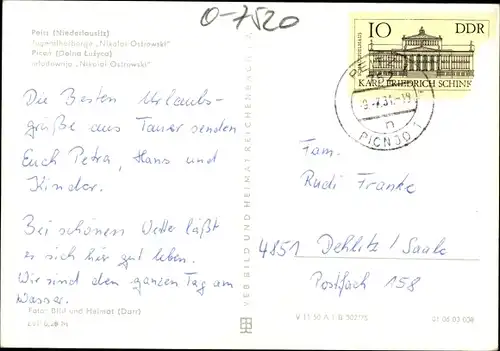 O-7520
Peitz (Niederlausitz)
Jugendherberge „Nikolai Ostrowski“
Picnjo (Dolna Łužyca)
młodownja „Nikolai Ostrowski“
Die Besten Urlaubs-
grüße aus Tauer senden
Euch Petra, Hans und
Kinder.
Bei schönem Wetter läßt
es sich hier gut leben.
Wir sind den ganzen Tag am
Wasser.
Foto: Bild und Heimat (Darr)
VEB BILD UND HEIMAT REICHENBACH
10 DDR
SCHAUSPIELHAUS
KARL FRIEDRICH SCHINK
-19
n
PICNJO
Fam.
Rudi Franke
4851 Dehlitz/Saale
Postfach 158
V 11 50 A 1 B
01 06 03 608